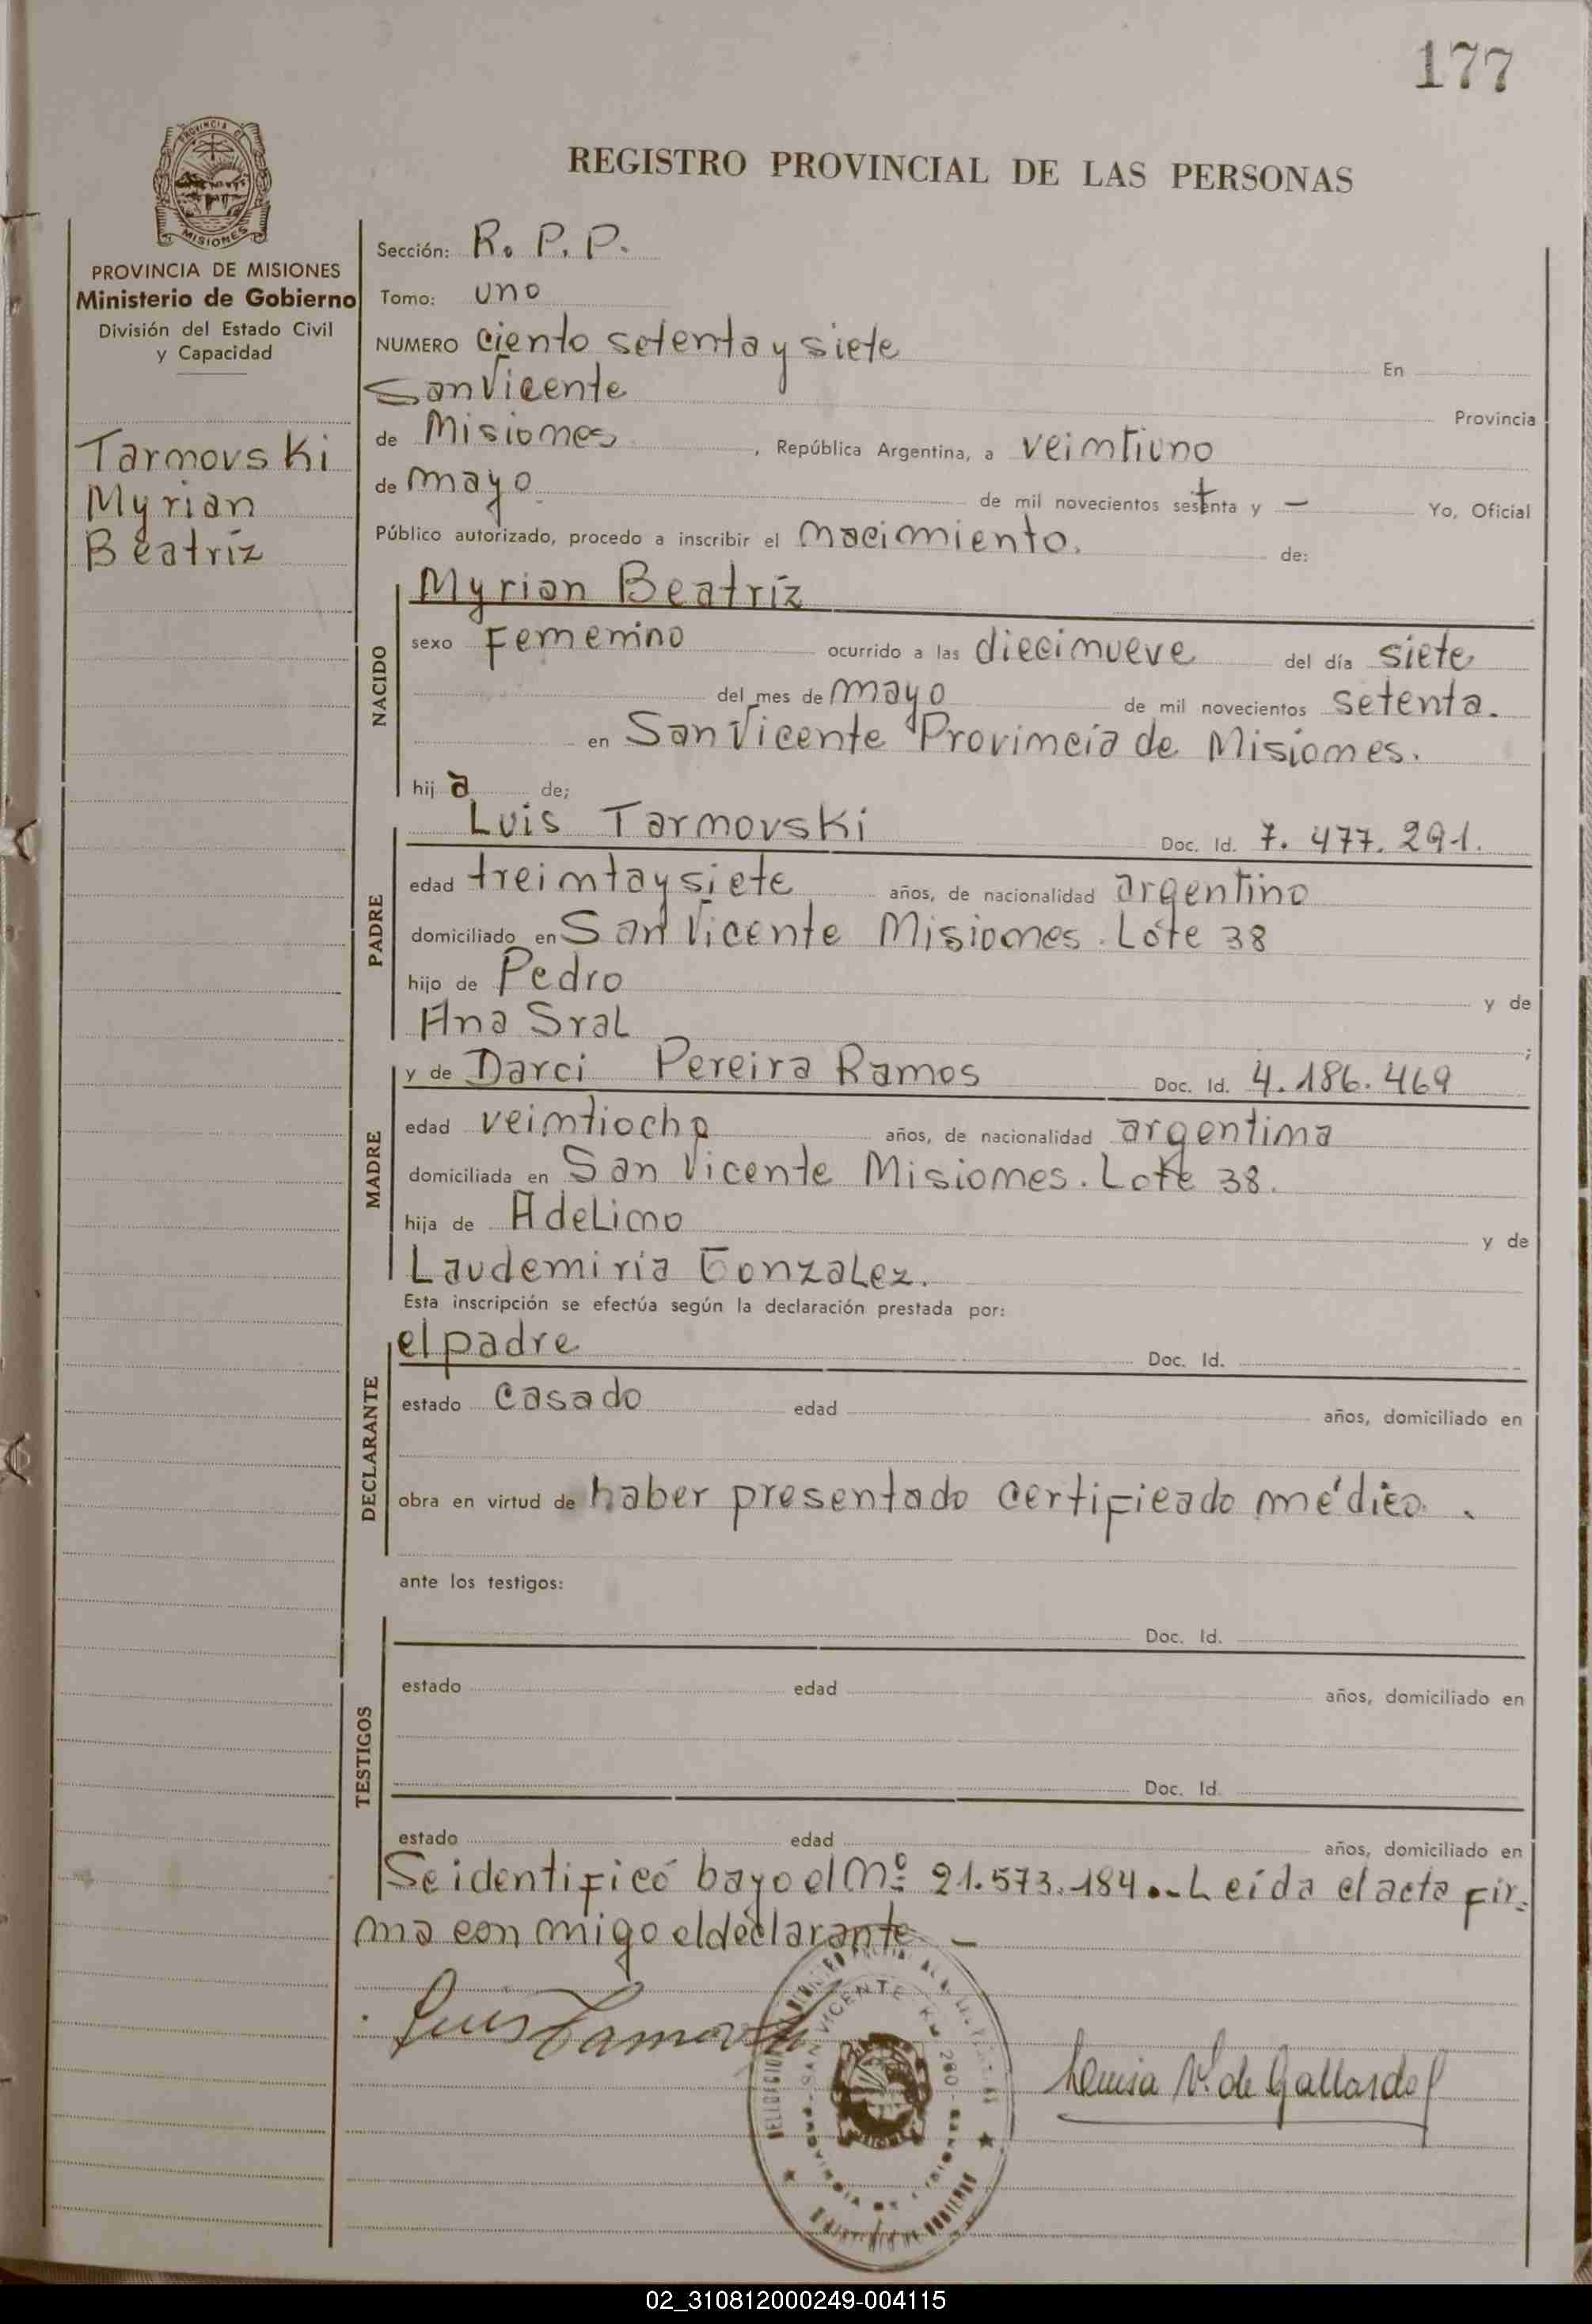 177
PROVINCIA DE
MISIONES
REGISTRO PROVINCIAL DE LAS PERSONAS
PROVINCIA DE MISIONES
Ministerio de Gobierno
División del Estado Civil
y Capacidad
Tarnovski
Myrian
Beatríz
Sección: R. P. P.
Tomo: uno
NUMERO ciento setenta y siete En
San Vicente Provincia
de Misiones, República Argentina, a veintiuno
de mayo de mil novecientos setenta y — Yo, Oficial
Público autorizado, procedo a inscribir el nacimiento. de:
NACIDO
Myrian Beatríz
sexo Femenino ocurrido a las diecinueve del día siete
del mes de mayo de mil novecientos setenta.
en San Vicente Provincia de Misiones.
hija de;
PADRE
Luis Tarnovski Doc. Id. 7.477.291.
edad treinta y siete años, de nacionalidad argentino
domiciliado en San Vicente Misiones. Lote 38
hijo de Pedro y de
Ana Sral;
MADRE
y de Darci Pereira Ramos Doc. Id. 4.186.469
edad veintiocho años, de nacionalidad argentina
domiciliada en San Vicente Misiones. Lote 38.
hija de Adelino y de
Laudemiria Gonzalez.
Esta inscripción se efectúa según la declaración prestada por:
DECLARANTE
el padre Doc. Id.
estado casado edad años, domiciliado en
obra en virtud de haber presentado certificado médico.
ante los testigos:
TESTIGOS
Doc. Id.
estado edad años, domiciliado en
Doc. Id.
estado edad años, domiciliado en
Se identificó bayo el Nº 21.573.184.- Leída el acta fir=
ma con migo el declarante —
Luis Tarnovski
SAN VICENTE KM 280
Luisa V. de Gallardo
02_310812000249-004115